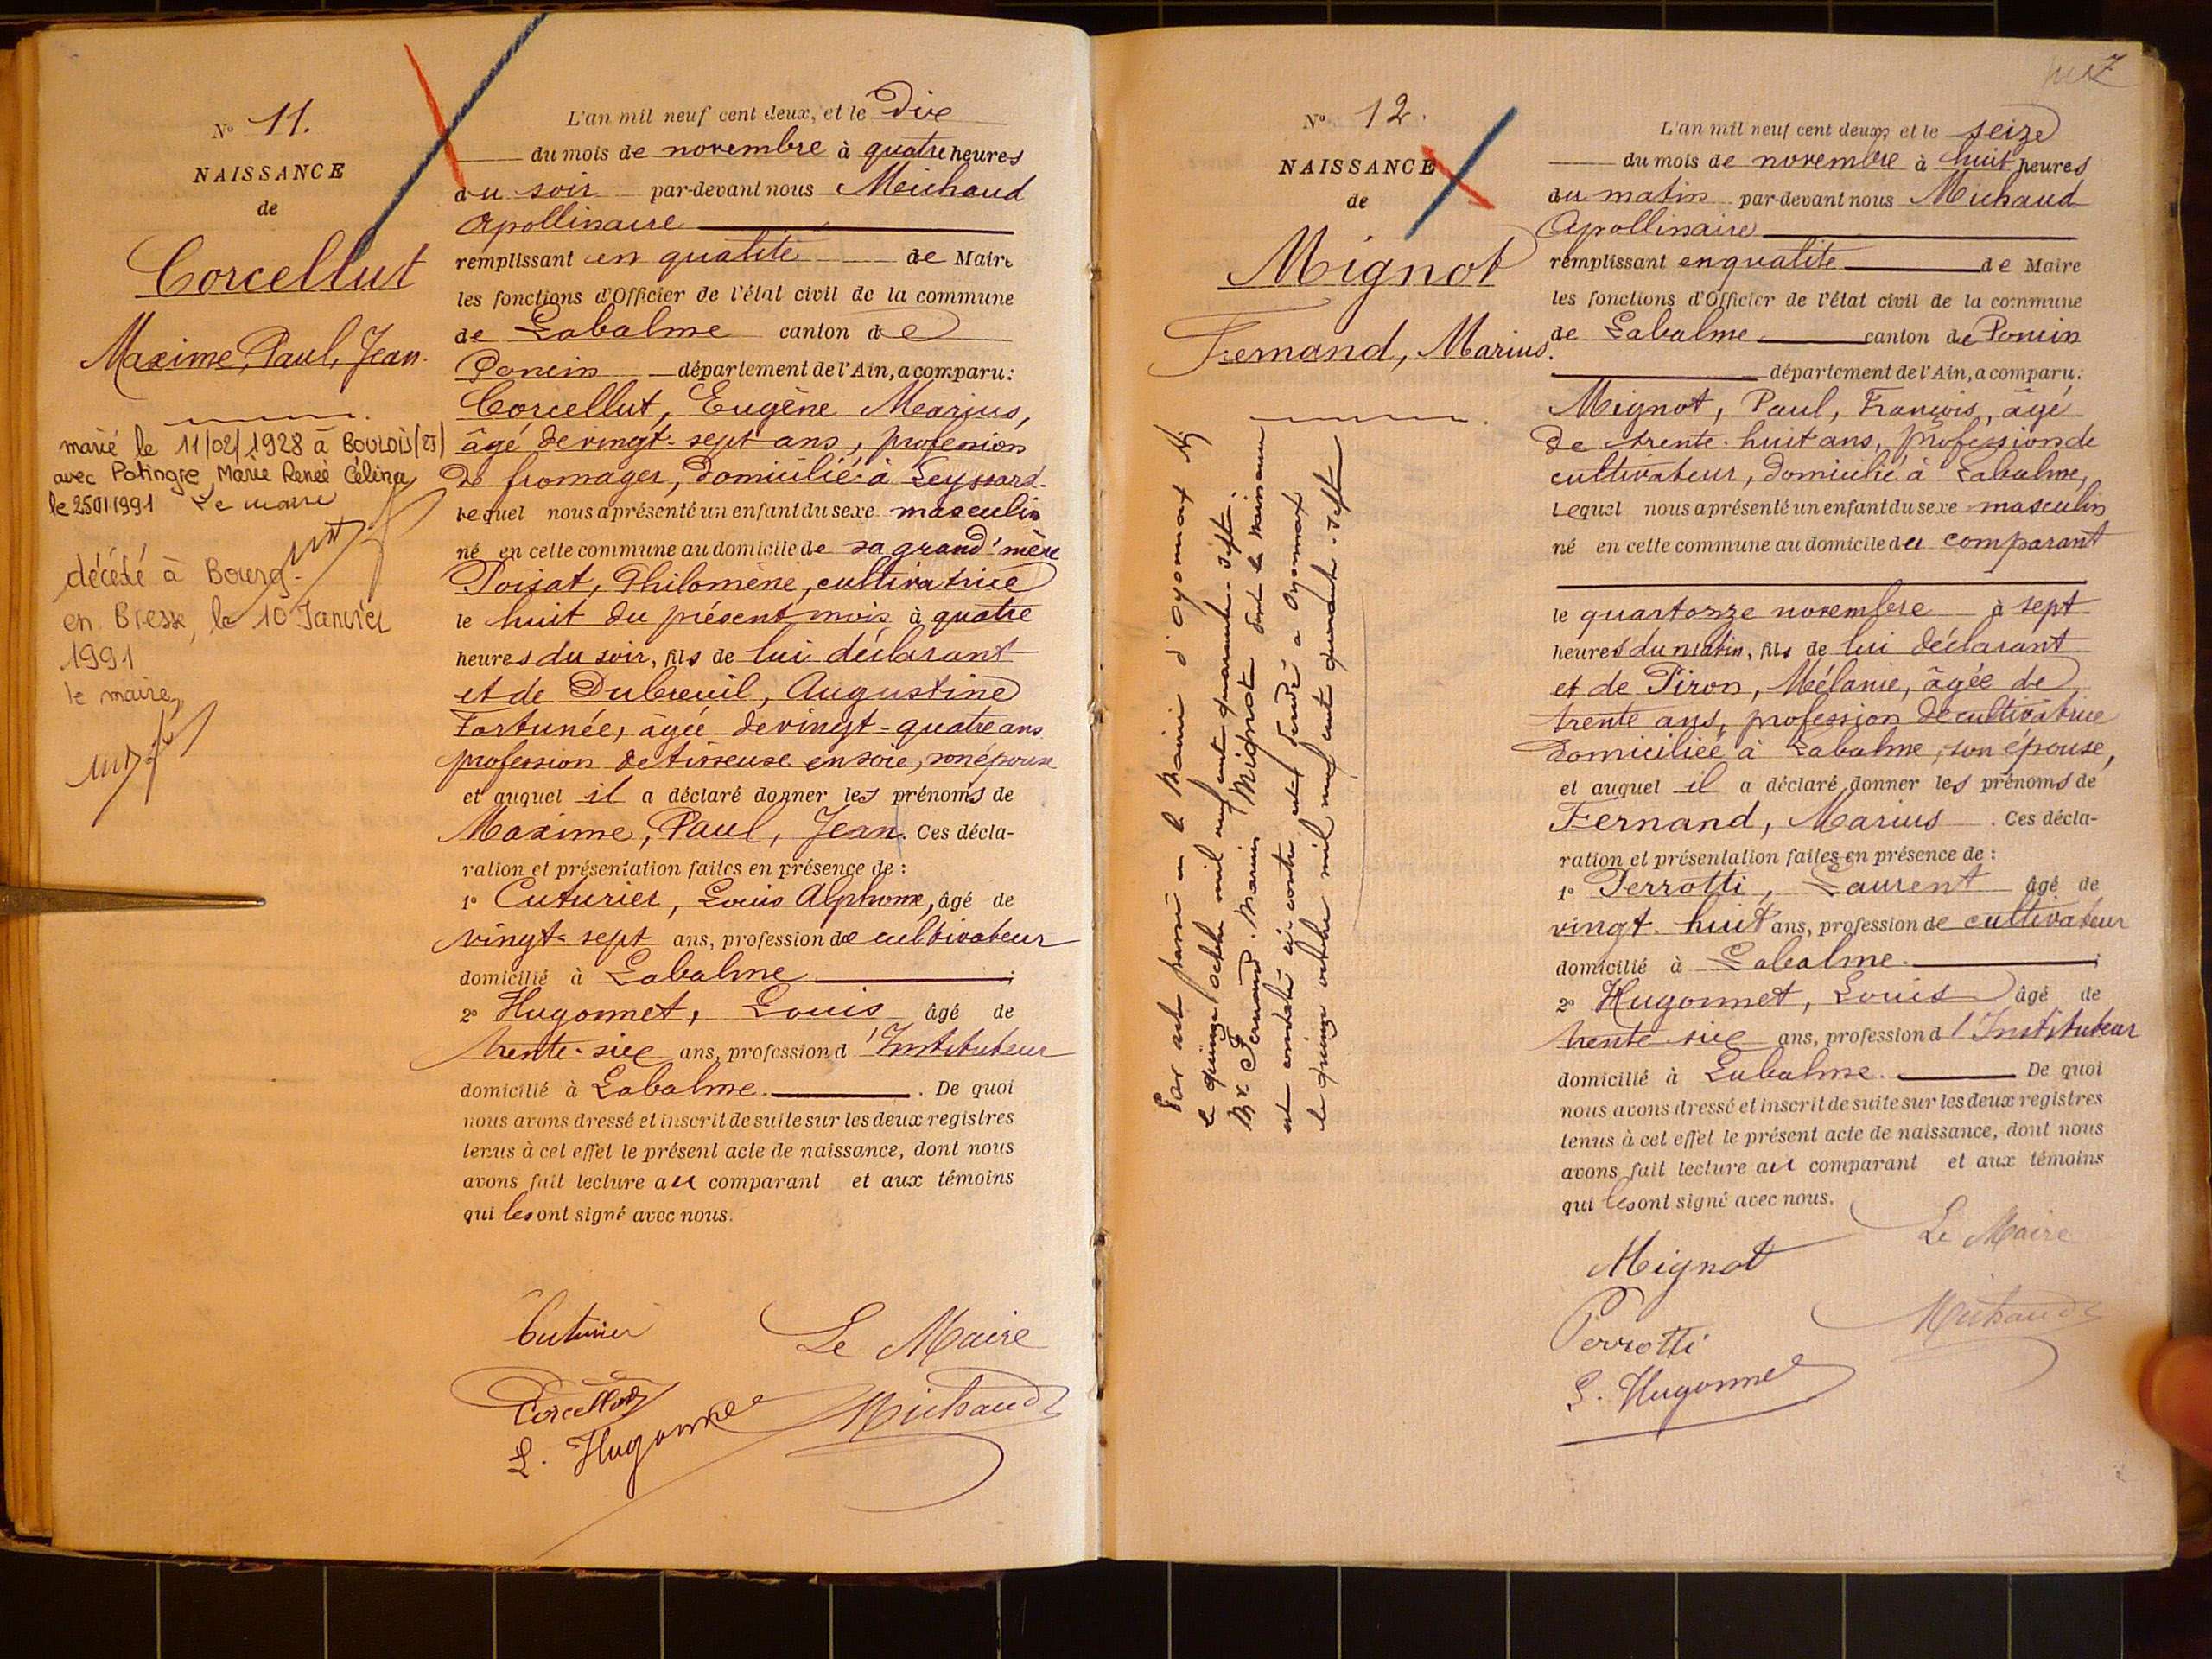 N° 11.
NAISSANCE
de
Corcellut
Maxime, Paul, Jean.
marié le 11/02/1928 à
avec Patingre Marie Renée Célina
le 25011991 Le maire
décédé à Bourg-
en Bresse, le 10 Janvier
1991
le maire,
L'an mil neuf cent deux, et le Dix
du mois de novembre à quatre heures
du soir par-devant nous Michaud
Apollinaire
remplissant en qualité de Maire
les fonctions d'Officier de l'état civil de la commune
de Labalme canton de
Poncin département de l'Ain, a comparu:
Corcellut, Eugène Marius,
âgé de vingt-sept ans, profession
de fromager, domicilié à Leyssard.
lequel nous a présenté un enfant du sexe masculin
né en cette commune au domicile de sa grand'mère
Poisat, Philomène, cultivatrice
le huit du présent mois à quatre
heures du soir, fils de lui déclarant
et de Dubreuil, Augustine
Fortunée, âgée de vingt-quatre ans
profession de tisseuse en soie, son épouse
et auquel il a déclaré donner les prénoms de
Maxime, Paul, Jean. Ces décla-
ration et présentation faites en présence de :
1° Cuturier, Louis Alphonse, âgé de
vingt-sept ans, profession de cultivateur
domicilié à Labalme ;
2° Hugonnet, Louis âgé de
trente-six ans, profession d'Instituteur
domicilié à Labalme. De quoi
nous avons dressé et inscrit de suite sur les deux registres
tenus à cet effet le présent acte de naissance, dont nous
avons fait lecture au comparant et aux témoins
qui les ont signé avec nous.
Cuturier Le Maire
Corcellut Michaud
L. Hugonnet
7
N° 12.
NAISSANCE
de
Mignot
Fernand, Marius.
Par acte passé en la Mairie d'Oyonnax le
quinze octobre mil neuf cent quarante-sept
Mr Fernand Marius Mignot dont la naissance
est constatée ci-contre est décédé à Oyonnax
le quinze octobre mil neuf cent quarante-sept
L'an mil neuf cent deux, et le seize
du mois de novembre à huit heures
du matin par-devant nous Michaud
Apollinaire
remplissant en qualité de Maire
les fonctions d'Officier de l'état civil de la commune
de Labalme canton de Poncin
département de l'Ain, a comparu:
Mignot, Paul, François, âgé
de trente-huit ans, profession de
cultivateur, domicilié à Labalme,
Lequel nous a présenté un enfant du sexe masculin
né en cette commune au domicile du comparant
le quartorze novembre à sept
heures du matin, fils de lui déclarant
et de Piron, Mélanie, âgée de
trente ans, profession de cultivatrice
domiciliée à Labalme, son épouse,
et auquel il a déclaré donner les prénoms de
Fernand, Marius. Ces décla-
ration et présentation faites en présence de :
1° Perrotti, Laurent âgé de
vingt-huit ans, profession de cultivateur
domicilié à Labalme. ;
2° Hugonnet, Louis âgé de
trente six ans, profession d'Instituteur
domicilié à Labalme. De quoi
nous avons dressé et inscrit de suite sur les deux registres
tenus à cet effet le présent acte de naissance, dont nous
avons fait lecture au comparant et aux témoins
qui les ont signé avec nous.
Le Maire
Mignot
Michaud
Perrotti
L. Hugonnet